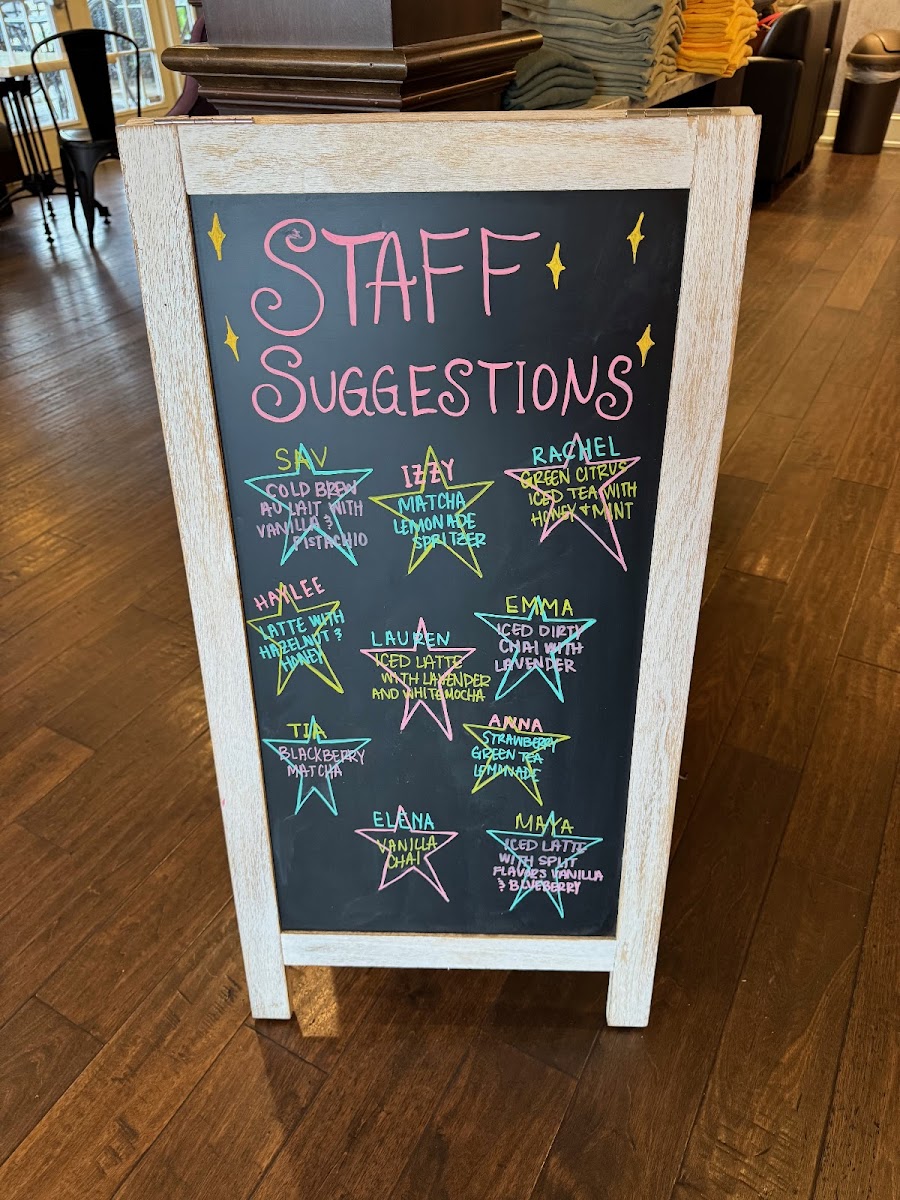 STAFF
SUGGESTIONS
SAV
COLD BREW
AU LAIT WITH
VANILLA &
PISTACHIO
IZZY
MATCHA
LEMONADE
SPRITZER
RACHEL
GREEN CITRUS
ICED TEA WITH
HONEY & MINT
HAYLEE
LATTE WITH
HAZELNUT &
HONEY
LAUREN
ICED LATTE
WITH LAVENDER
AND WHITEMOCHA
EMMA
ICED DIRTY
CHAI WITH
LAVENDER
TIA
BLACKBERRY
MATCHA
ANNA
STRAWBERRY
GREEN TEA
LEMONADE
ELENA
VANILLA
CHAI
MAYA
ICED LATTE
WITH SPLIT
FLAVORS VANILLA
& BLUEBERRY